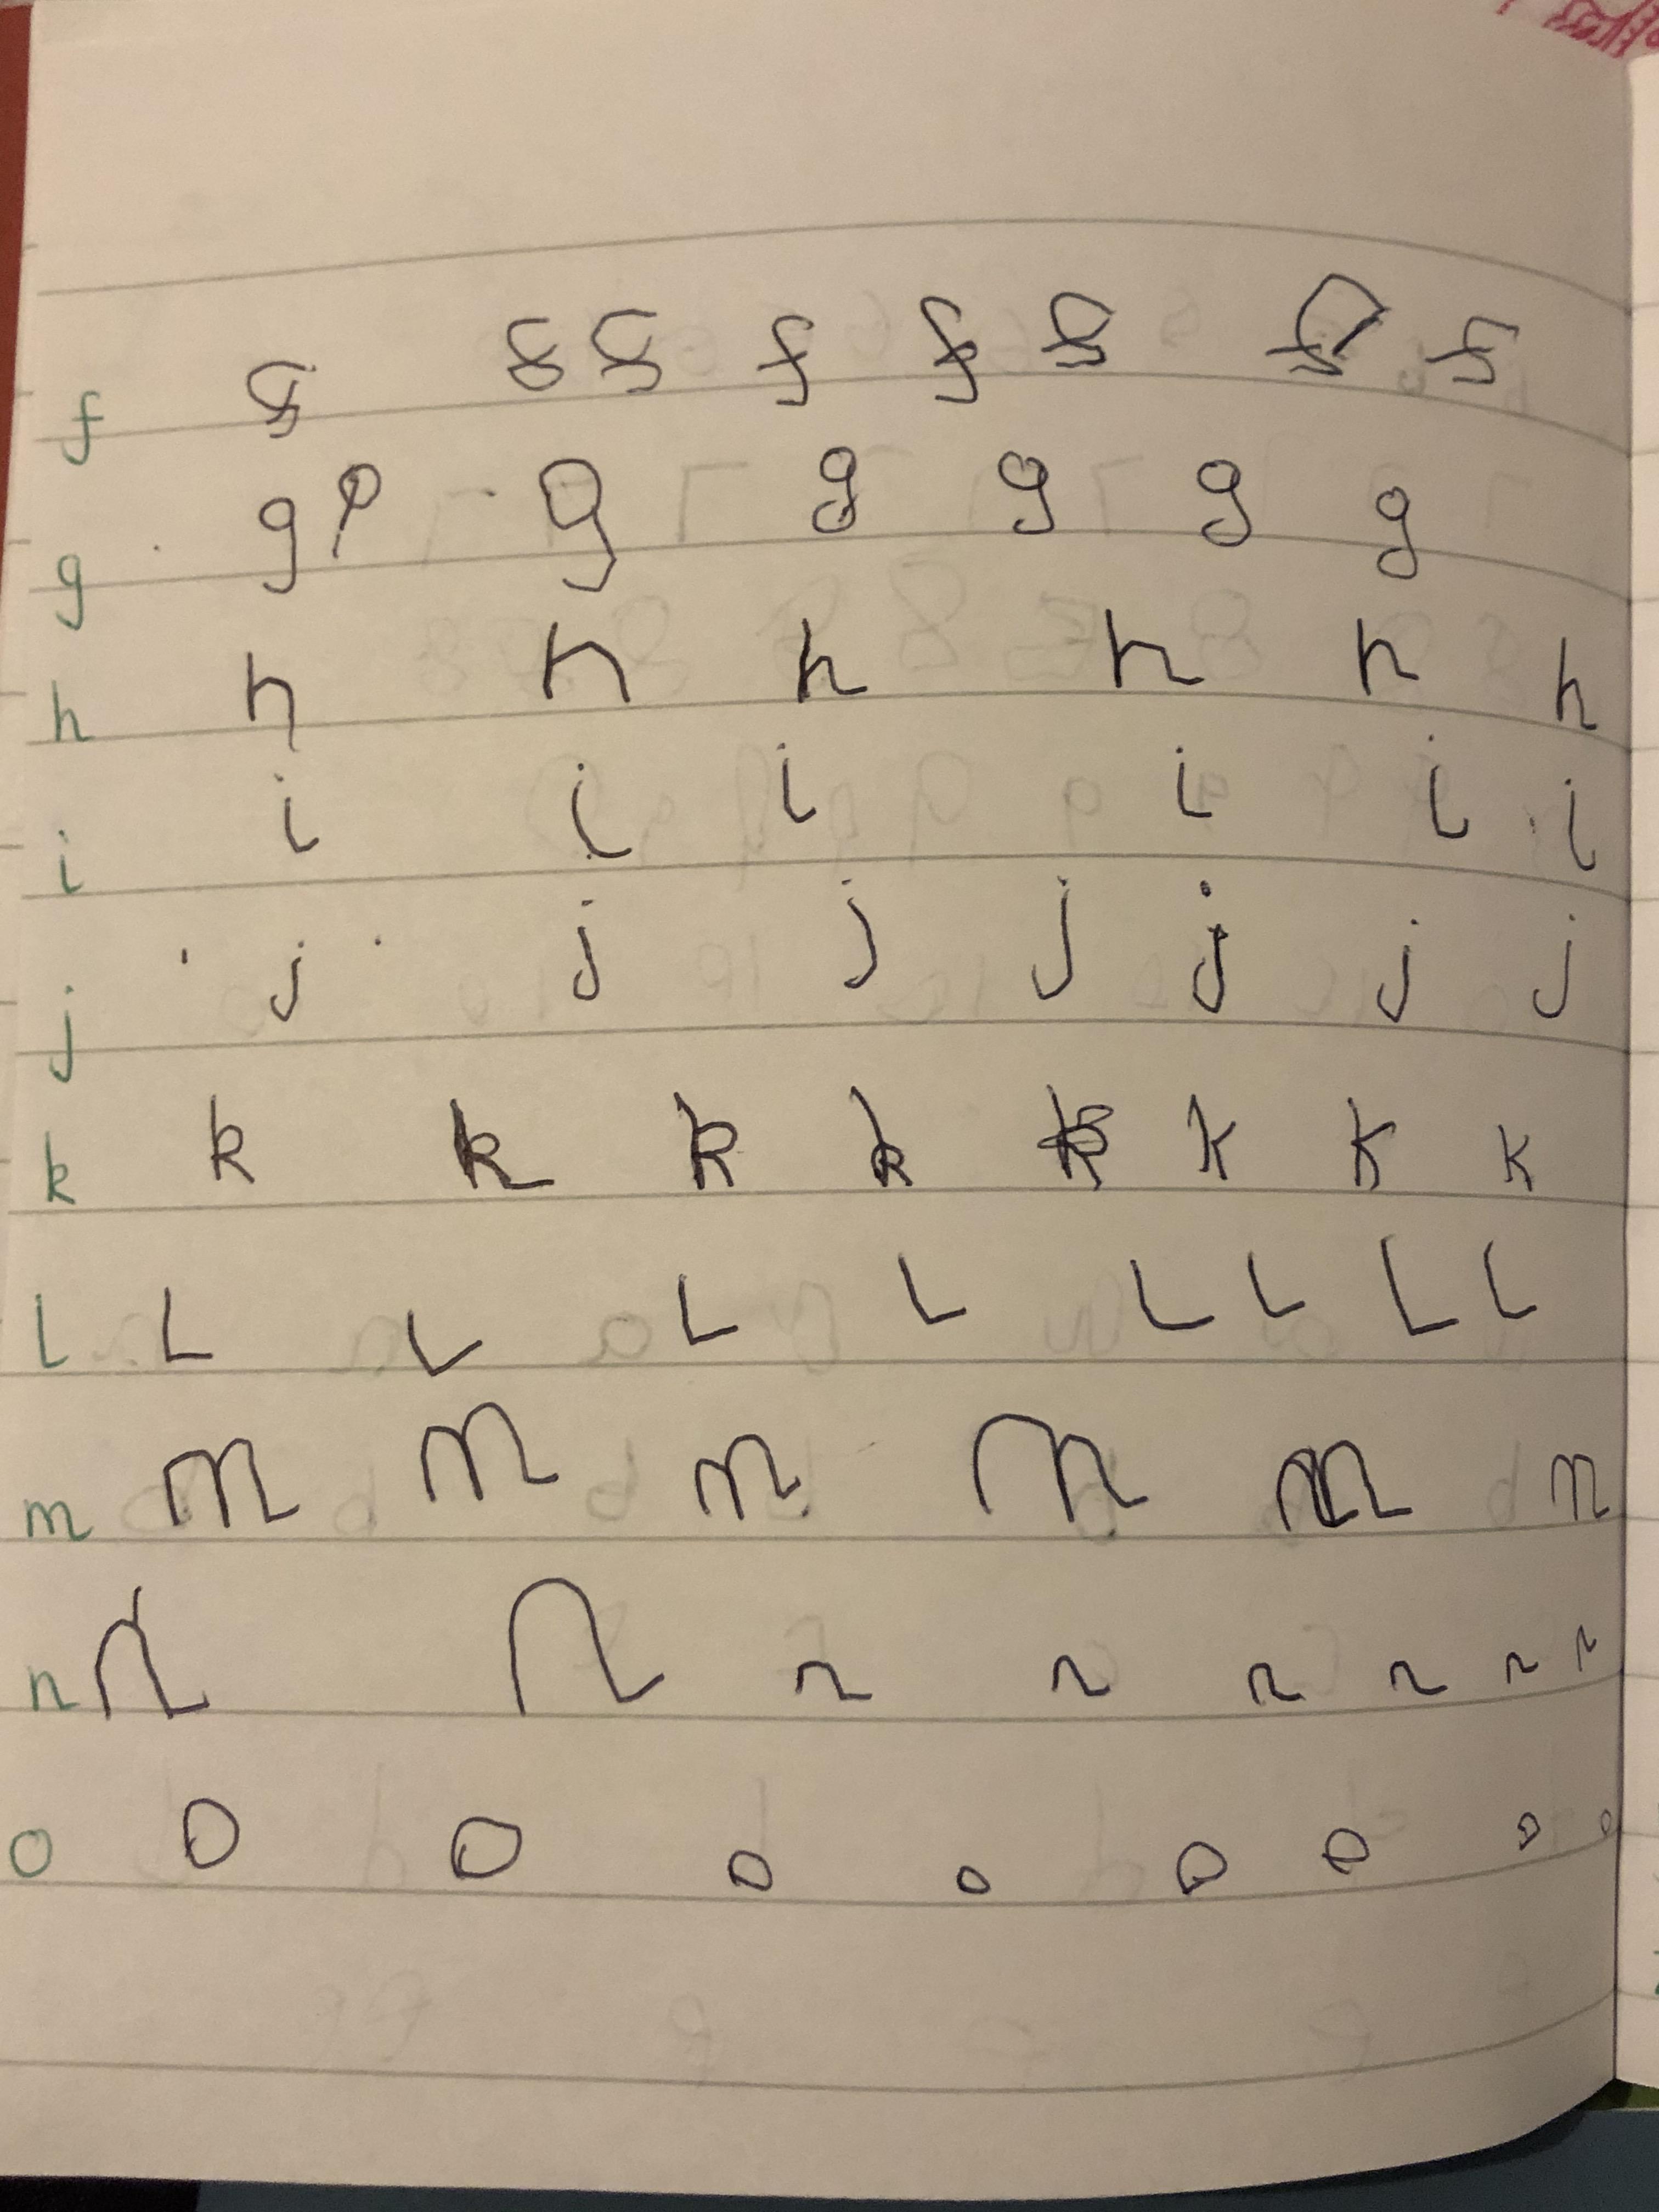 f f f f f f f f f
g g g g g g g g
h h h h h h h
i i i i i i i
j j j j j j j j
k k k k k k k k k
l L L L L L L L L
m m m m m m m
n n n n n n n n n
o o o o o o o o o